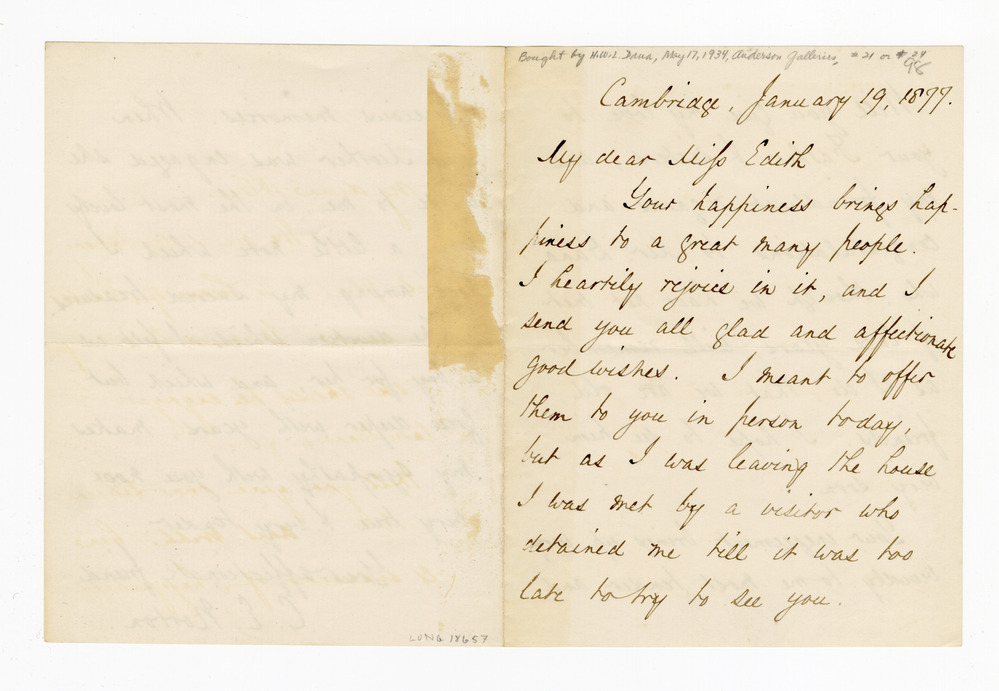 Bought by H.W.L. Dana, May 17, 1934, Anderson Galleries, #21 or #24
Cambridge, January 19, 1877.
My dear Miss Edith
Your happiness brings hap-
piness to a great many people.
I heartily rejoice in it, and I
send you all glad and affectionate
good wishes. I meant to offer
them to you in person today,
but as I was leaving the house
I was met by a visitor who
detained me till it was too
late to try to see you.
LONG 18657